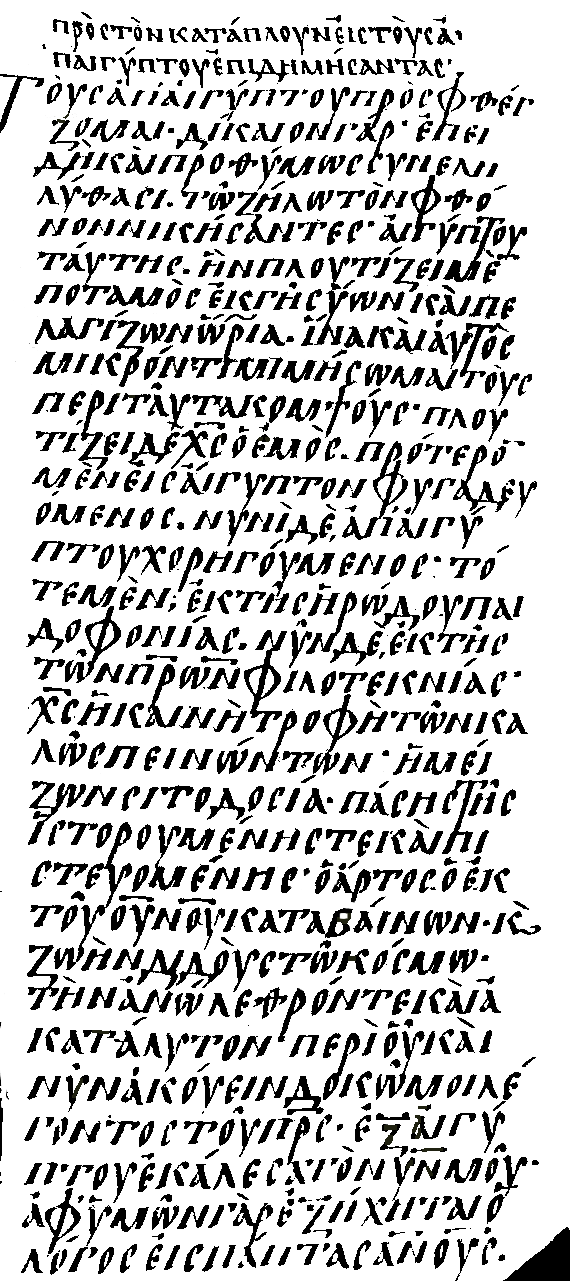 πρὸς τὸν κατάπλουν εἰς τοὺς ἀ
π' αἰγύπτου ἐπιδημήσαντας·
Τοὺς ἀπ' αἰγύπτου προσφθέγ
ζομαι· δίκαιον γάρ· ἐπει
δὴ καὶ προθύμως συνελη
λύθασι. τῶ ζήλω τὸν φθό
νον νικήσαντες· αἰγύπτου
ταύτης. ἣν πλουτίζει μὲ
ποταμὸς ἐκ γῆς ὕων καὶ πε
λαγίζων ὥρια. ἵνα καὶ αὐτὸς
μικρόν τι μιμήσωμαι τοὺς
περὶ ταῦτα κομψούς· πλου
τίζει δὲ χς ὁ ἐμὸς. πρότερο
μὲν εἰς αἴγυπτον φυγαδευ
όμενος. νυνὶ δὲ ἀπ' αἰγύ
πτου χορηγούμενος· τό
τε μὲν; ἐκ τῆς ἡρώδου παι
δοφονίας. νῦν δὲ ἐκ τῆς
τῶν πρων φιλοτεκνίας·
χς ἡ καινὴ τροφὴ τῶν κα
λῶς πεινώντων· ἡ μεί
ζων σιτοδοσία· πάσης τῆς
ἱστορουμένης τε καὶ πι
στευομένης· ὁ ἄρτος ὁ ἐκ
τοῦ ουνου καταβαίνων· κ
ζωὴν διδοὺς τῶ κόσμω·
τὴν ἀνώλεθρόν τε καὶ ἀ
κατάλυτον· περὶ οὗ καὶ
νῦν ἀκούειν δοκῶ μοι λέ
γοντος τοῦ πρς· ἐξ αἰγύ
πτου ἐκάλεσα τὸν υν μοῦ·
ἀφ' ὑμῶν γὰρ ἐξήχηται ὁ
λόγος εἰς πάντας ανους.